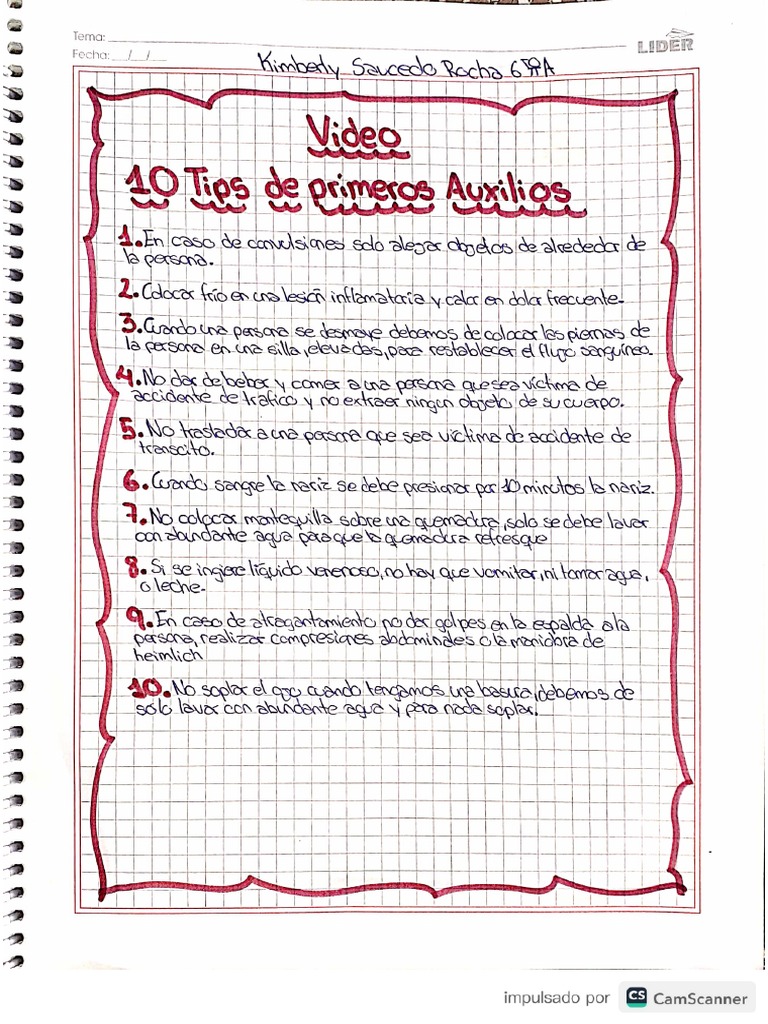 Tema:
LIDER
Fecha: / /
Kimberly Saucedo Rocha 6° A
Video
10 Tips de primeros Auxilios
1. En caso de convulsiones solo alejar objetos de alrededor de
la persona.
2. Colocar frío en una lesión inflamatoria y calor en dolor frecuente.
3. Cuando una persona se desmaye debemos de colocar las piernas de
la persona en una silla, elevadas, para restablecer el flujo sanguíneo.
4. No dar de beber y comer a una persona que sea víctima de
accidente de trafico y no extraer ningun objeto de su cuerpo.
5. No trasladar a una persona que sea victima de accidente de
transcito.
6. Cuando sangre la nariz se debe presionar por 10 minutos la nariz.
7. No colocar mantequilla sobre una quemadura, solo se debe lavar
con abundante agua para que la quemadura refresque
8. Si se ingiere líquido venenoso, no hay que vomitar, ni tomar agua,
o leche.
9. En caso de atragantamiento no dar golpes en la espalda a la
persona, realizar compresiones abdominales o la maniobra de
heimlich
10. No soplar el ojo cuando tengamos una basura, debemos de
solo lavar con abundante agua y para nada soplar.
impulsado por CS CamScanner